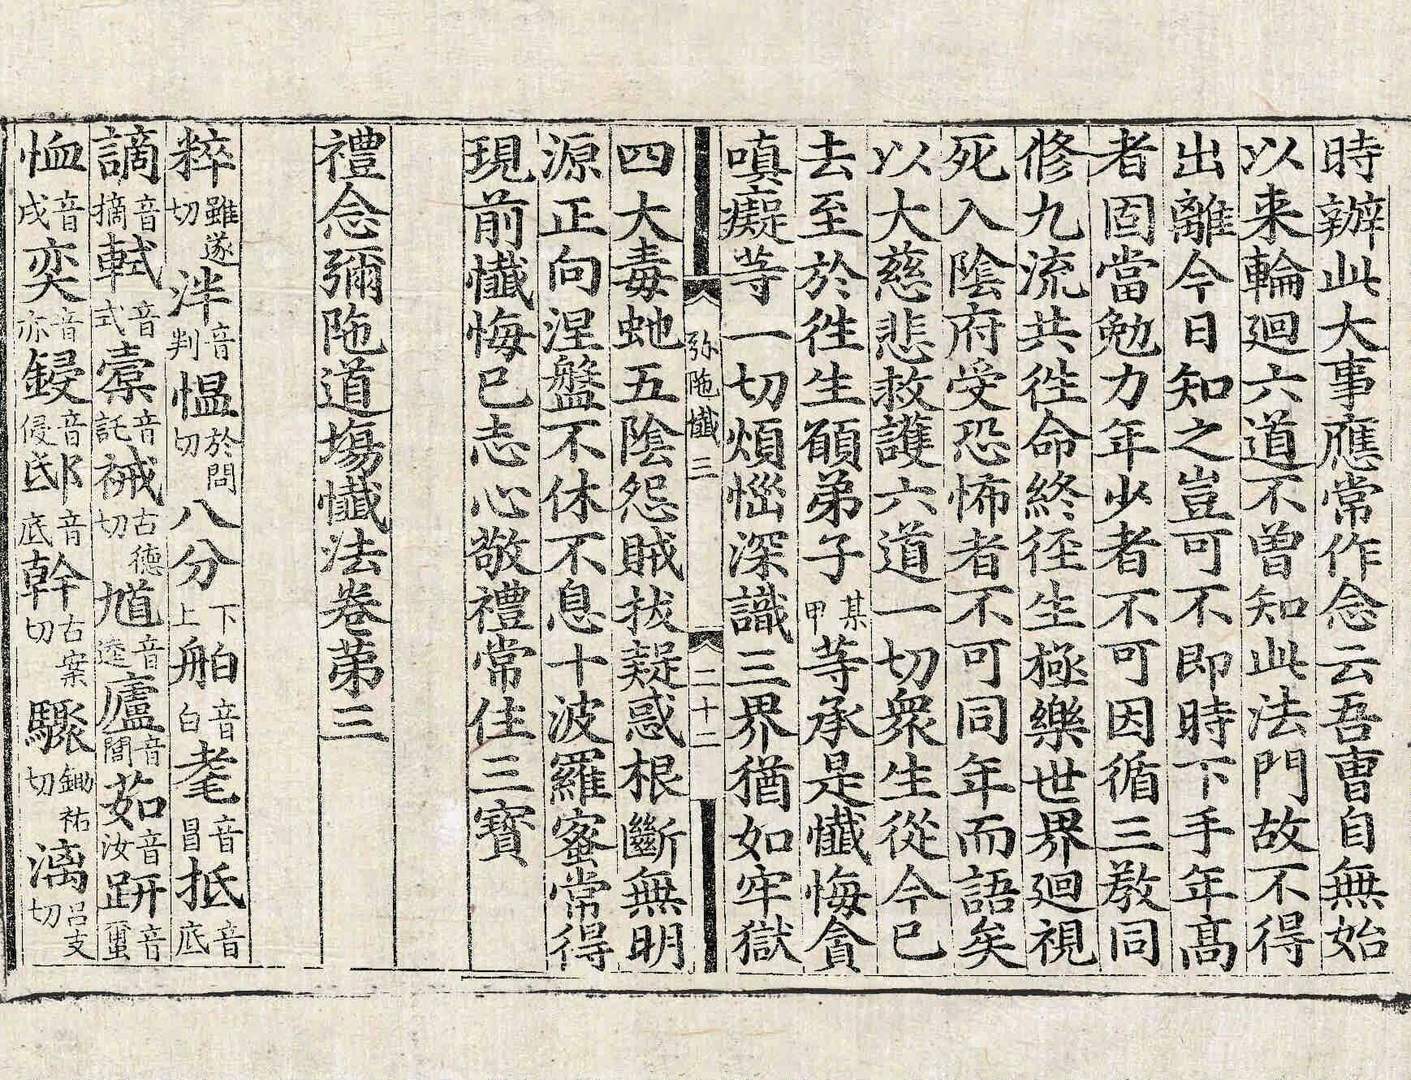 時辦此大事應常作念云吾曹自無始
以来輪廻六道不曾知此法門故不得
出離今日知之豈可不即時下手年髙
者固當勉力年少者不可因循三教同
修九流共徃命終徑生極樂世界廻視
死入陰府受恐怖者不可同年而語矣
以大慈悲救護六道一切衆生從今已
去至於徃生願弟子某甲等承是懺悔貪
嗔癡等一切煩惱深識三界猶如牢獄
弥陁懺三 二十二
四大毒虵五陰怨賊拔疑惑根斷無明
源正向涅盤不休不息十波羅蜜常得
現前懺悔已志心敬禮常住三寶
禮念彌陁道塲懺法卷苐三
粹雖遂切泮音判愠於問切八分下上舶音白耄音昌抵音底
謫音摘軾音式橐音託祴古德切馗音逵廬音閭茹音汝趼音璽
恤音戌奕音亦鋟音侵邸音底幹古案切驟鋤祐切漓呂支切